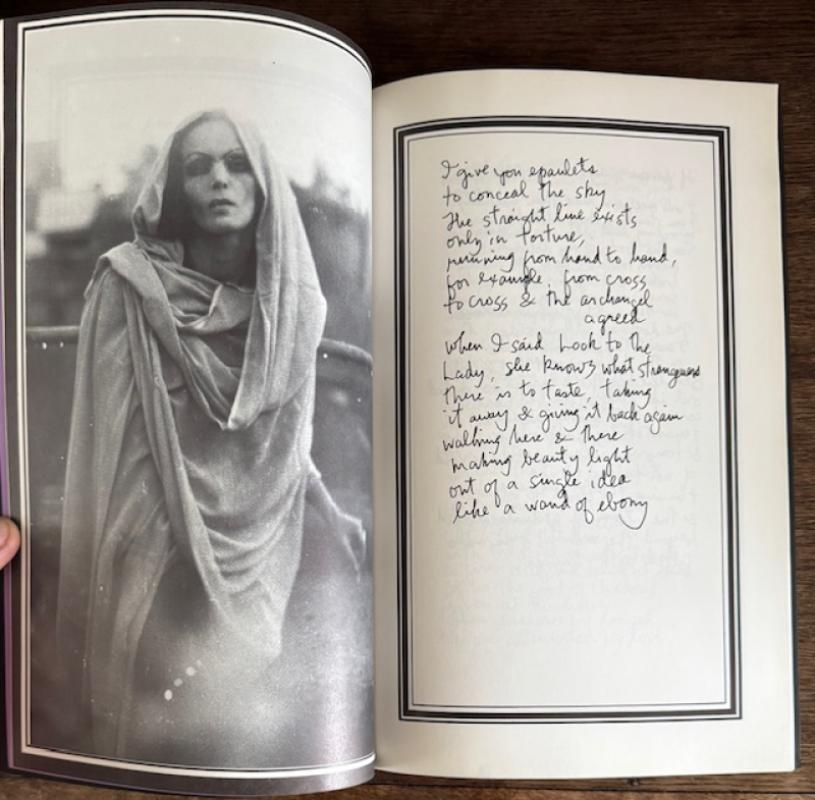 I give you epaulets
to conceal the sky
The straight line exists
only in torture,
running from hand to hand,
for example, from cross
to cross & the archangel
agreed
when I said Look to the
Lady, she knows what strangeness
there is to taste, taking
it away & giving it back again
walking here & there
making beauty light
out of a single idea
like a wand of ebony